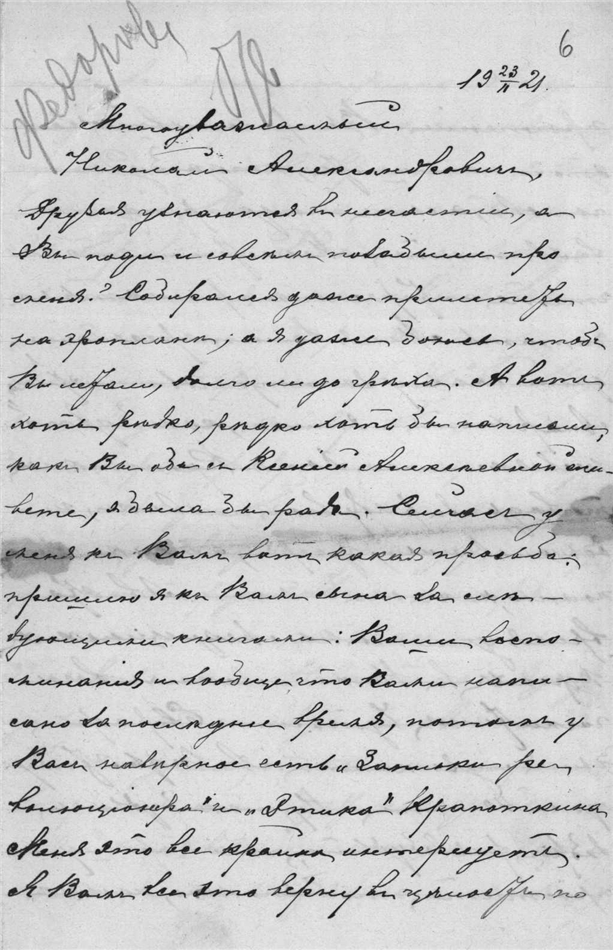 6
19 23/II 21.
Многоуважаемый
Николай Александрович,
Друзья узнаются въ несчастіи, а
Вы поди и совсѣмъ позабыли про
меня? Собирался даже прилетѣть
на аэропланѣ, а я даже боюсь, чтобы
Вы летали, долго ли до грѣха. А вотъ
хоть рѣдко, рѣдко хоть бы написали,
какъ Вы оба съ Ксеніей Алексѣевной жи-
вете, я была бы рада. Сейчасъ у
меня къ Вамъ вотъ какая просьба:
пришлю я къ Вамъ сына за слѣ-
дующими книгами: Ваши воспо-
минанія и вообще что Вами напи-
сано за последнее время, потомъ у
Васъ навѣрное есть „Записки ре
волюціонера" и „Этика" Крапоткина
Меня это все крайне интересуетъ.
Я Вамъ все это верну въ цѣлости по